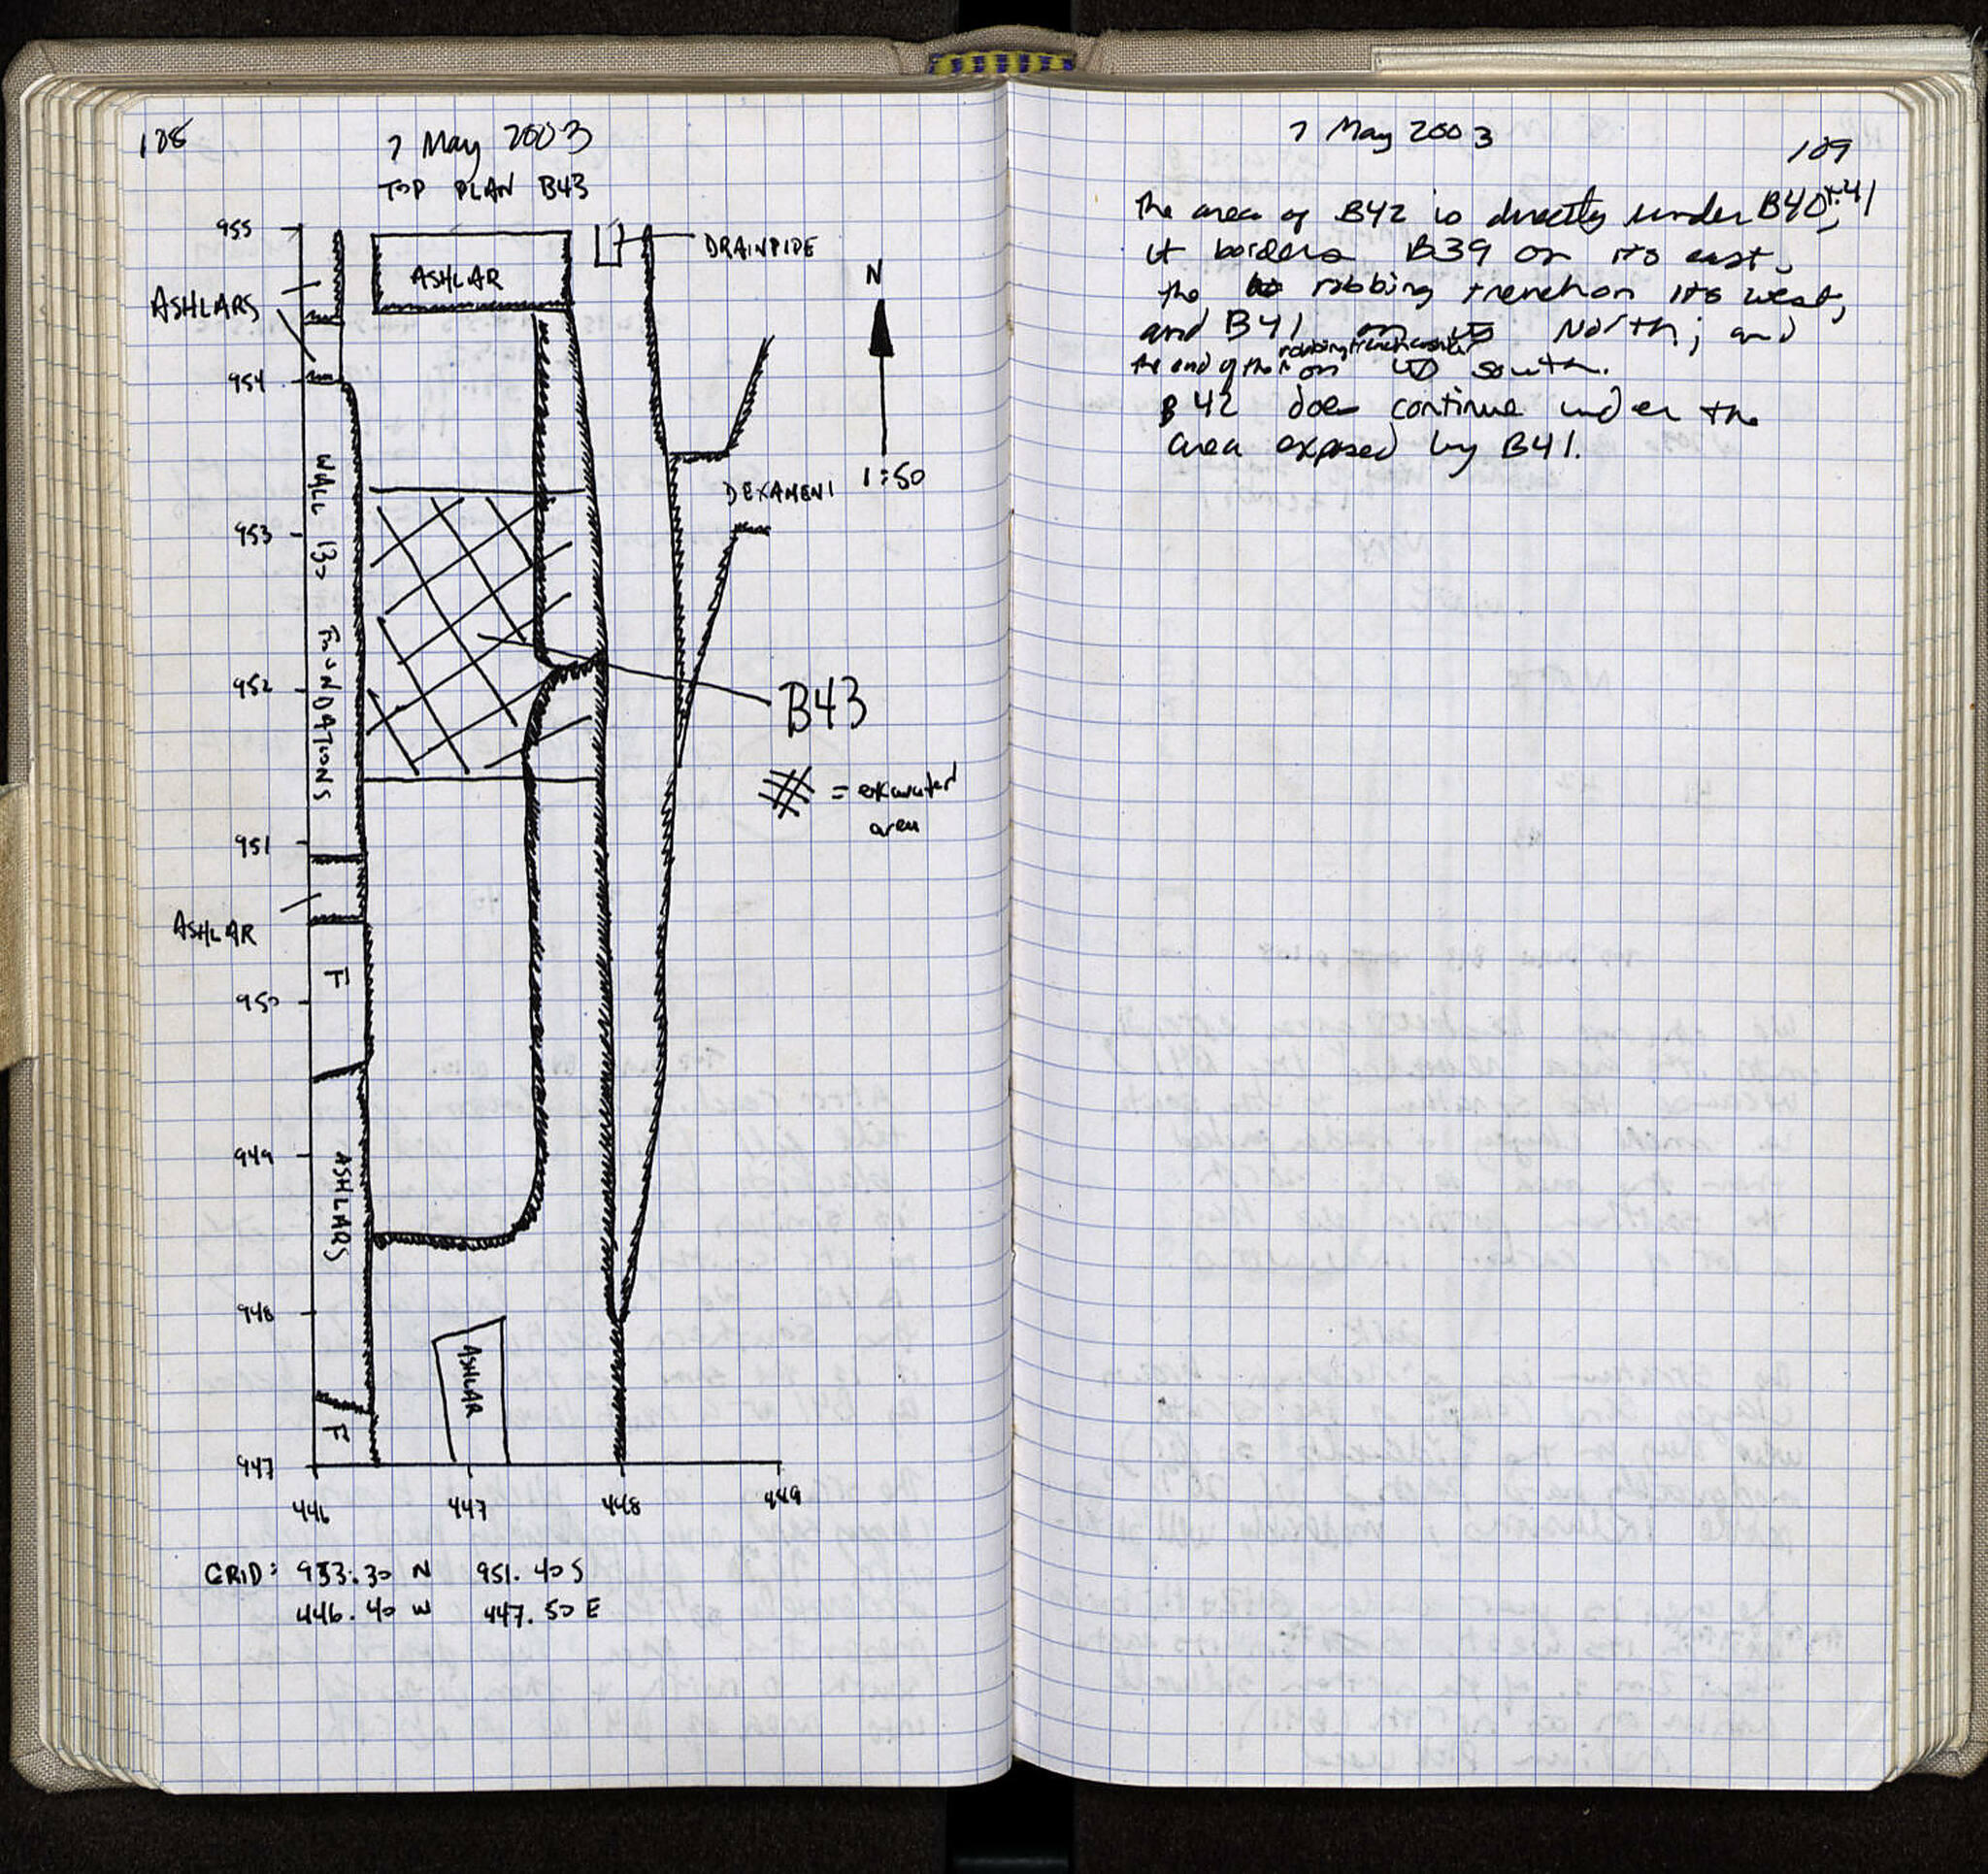 108
7 May 2003
TOP PLAN B43
955
ASHLAR
DRAINPIPE
N
ASHLARS
954
1:50
DEXAMENI
WALL 130 FOUNDATIONS
953
952
B43
= excavated
area
951
ASHLAR
F
950
949
ASHLARS
948
ASHLAR
F
947
446
447
448
449
GRID: 953.30 N 951.40 S
446.40 W 447.50 E
7 May 2003
109
The area of B42 is directly under B40+41,
it borders B39 on its east,
the robbing trench on its west,
and B41 on its North; and
the end of the robbing trench on its south.
B42 does continue under the
area exposed by B41.